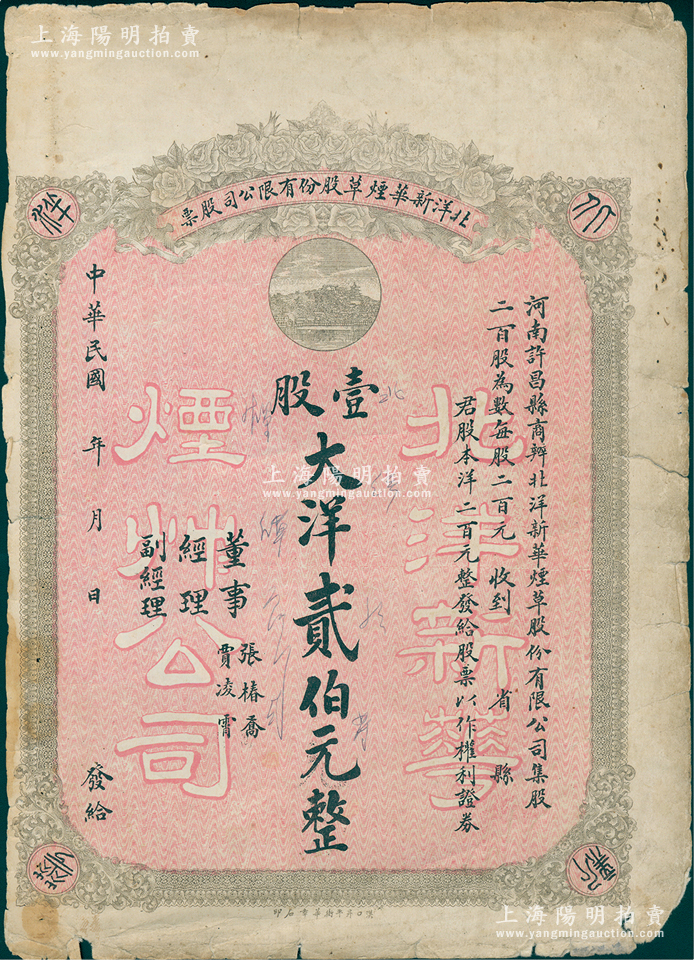 上海陽明拍賣
www.yangmingauction.com
上海陽明拍賣
www.yangmingauction.com
北洋新華煙草股份有限公司股票
北
洋
新
華
河南許昌縣商辦北洋新華煙草股份有限公司集股
二百股為數每股二百元 收到 省 縣
君股本洋二百元整發給股票以作權利證券
北洋新華
煙艸公司
壹股
大洋貳伯元整
董事 張椿喬
經理 賈凌霄
副經理
中華民國 年 月 日 發給
上海陽明拍賣
www.yangmingauction.com
上海陽明拍賣
www.yangmingauction.com